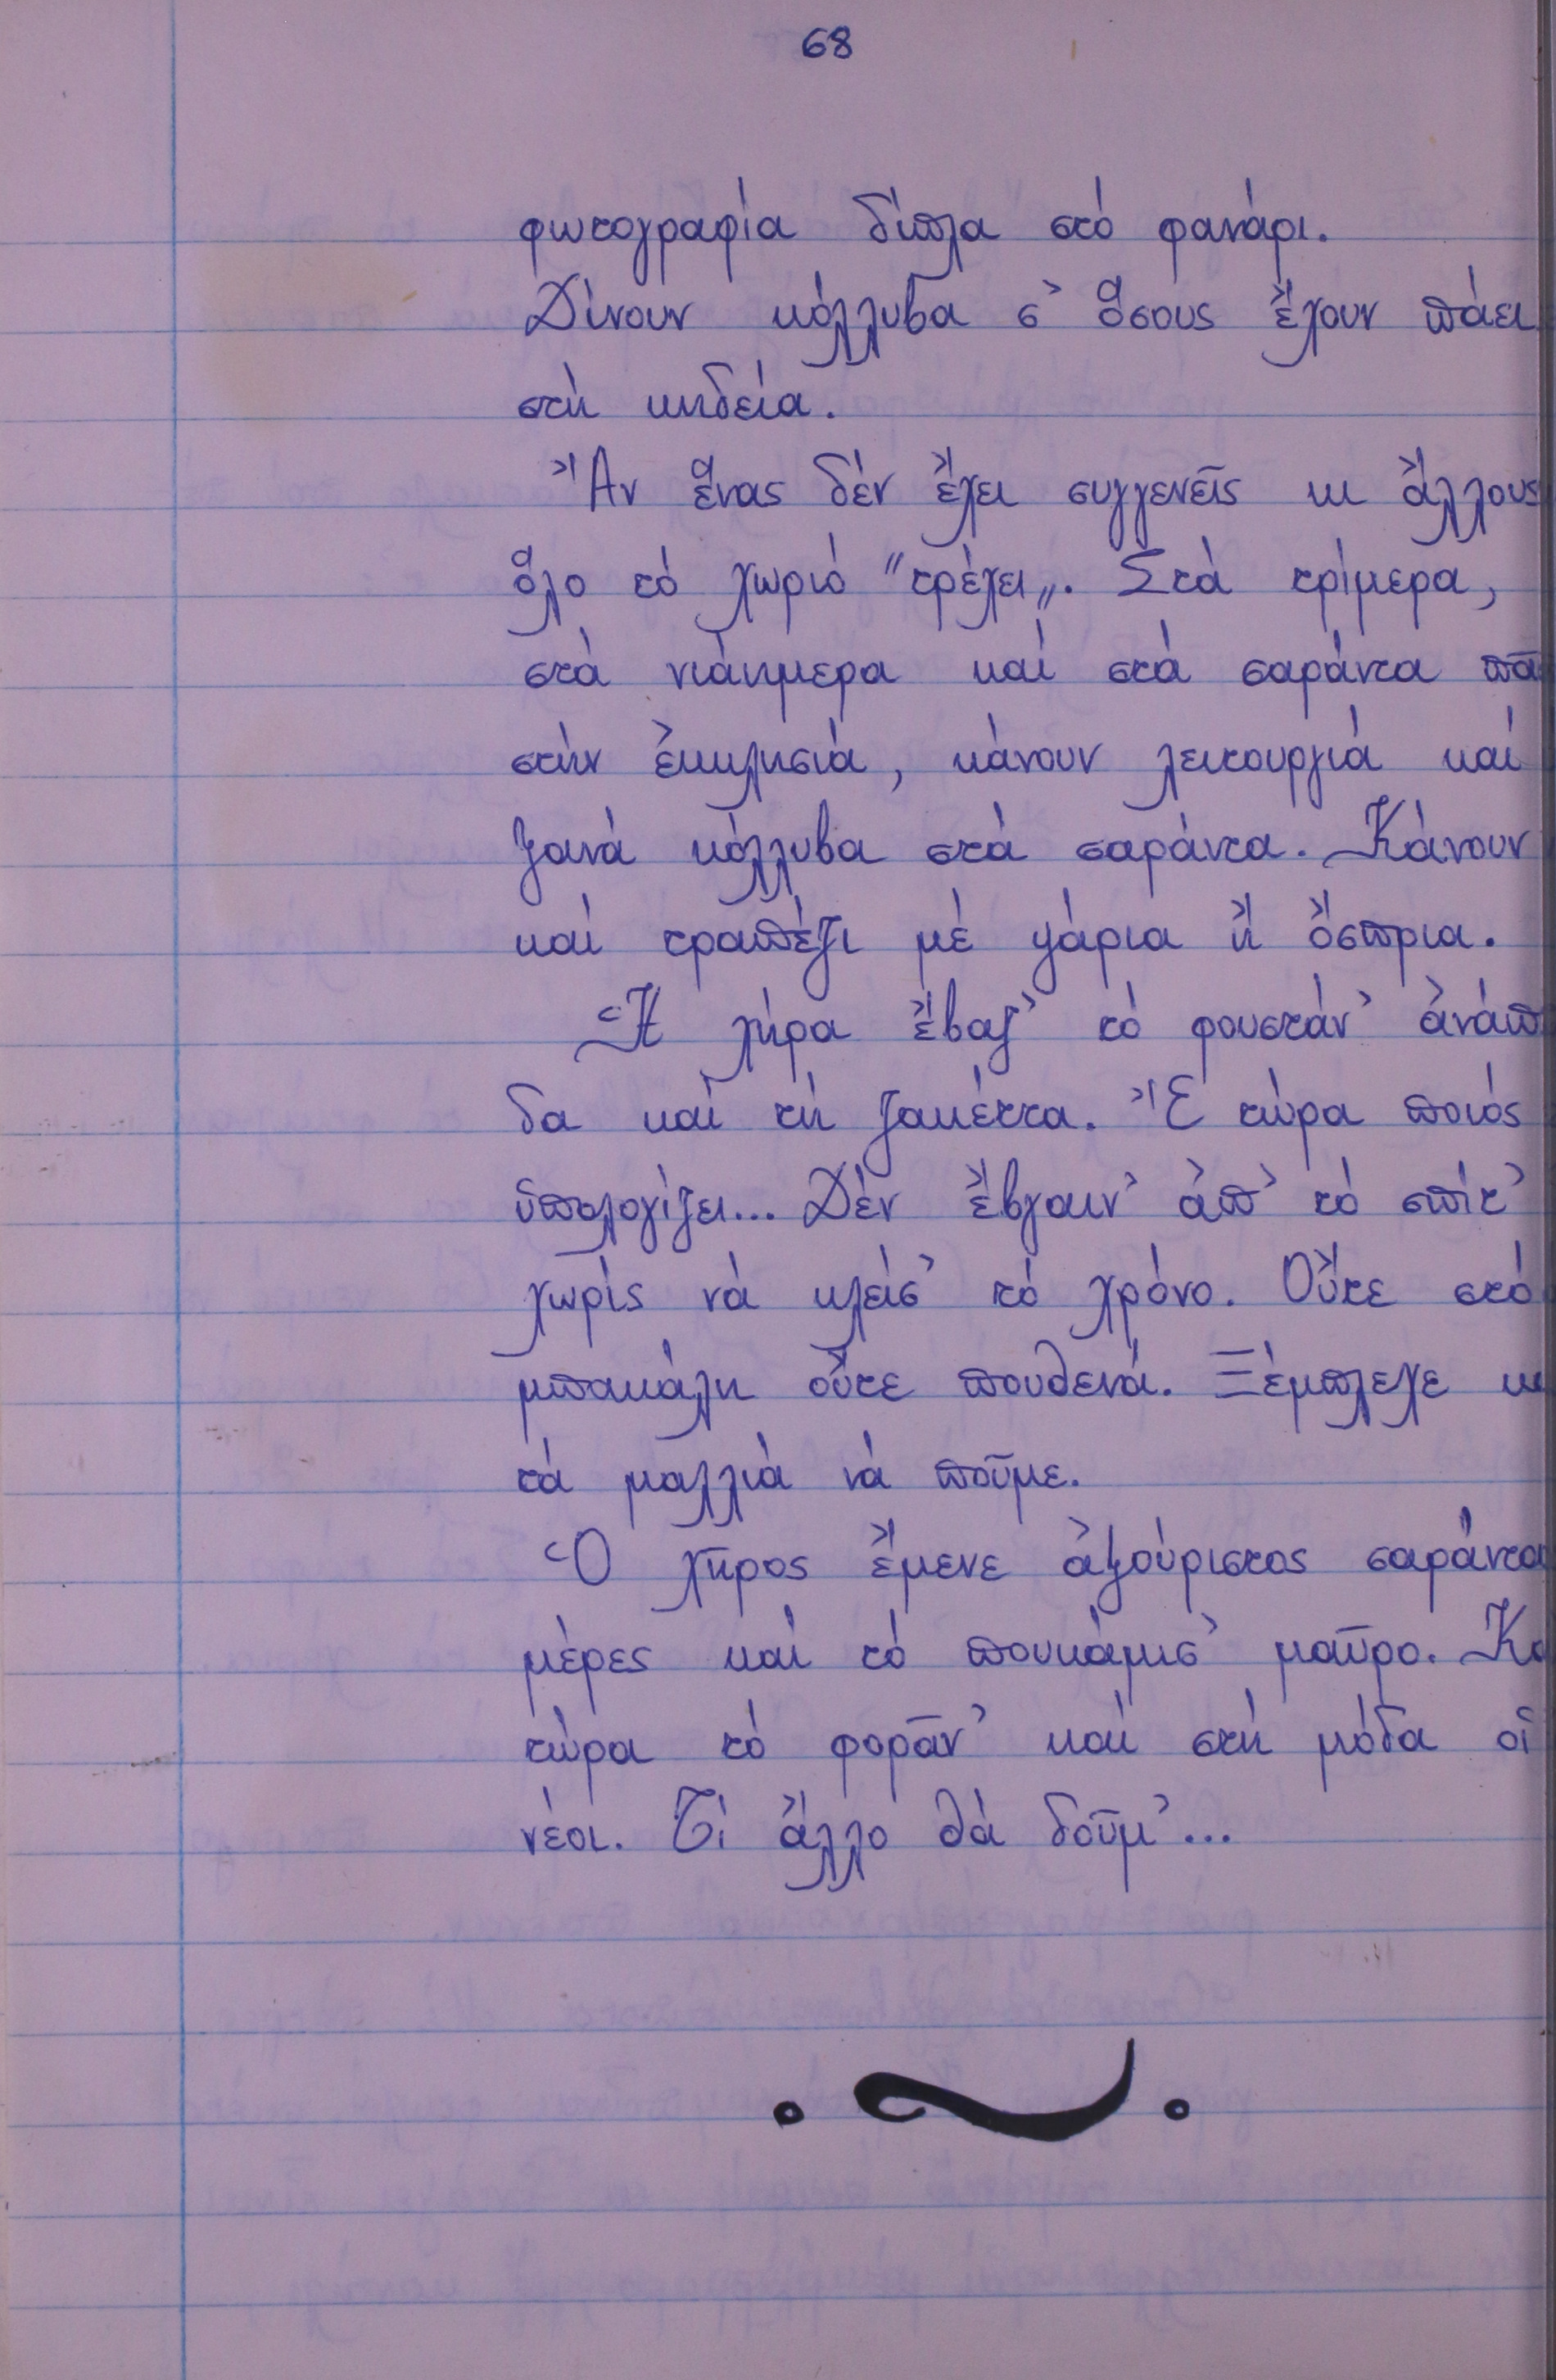 68
φωτογραφία δίπλα στό φανάρι.
Δίνουν κόλλυβα σ' ὅσους ἔχουν πάει
στή κηδεία.
Ἄν ἕνας δέν ἔχει συγγενεῖς κι ἄλλους
ὅλο τό χωριό "τρέχει„. Στά τρίμερα,
στά νιάημερα καί στά σαράντα πᾶ
στήν ἐκκλησιά, κάνουν λειτουργιά καί
ξανά κόλλυβα στά σαράντα. Κάνουν
καί τραπέζι μέ ψάρια ἤ ὄσπρια.
Ἡ χήρα ἔβαζ' τό φουστάν' ἀνάπ
δα καί τή ζακέττα. Ἔ τώρα ποιός
ὑπολογίζει... Δέν ἔβγαιν' ἀπ' τό σπίτ'
χωρίς νά κλείσ' τό χρόνο. Οὔτε στό
μπακάλη οὔτε πουθενά. Ξέμπλεχε κι
τά μαλλιά νά ποῦμε.
Ὁ χῆρος ἔμενε ἀξούριστος σαράντα
μέρες καί τό πουκάμισ' μαῦρο. Κα
τώρα τό φορᾶν' καί στή μόδα οἱ
νέοι. Τί ἄλλο θά δοῦμ'...